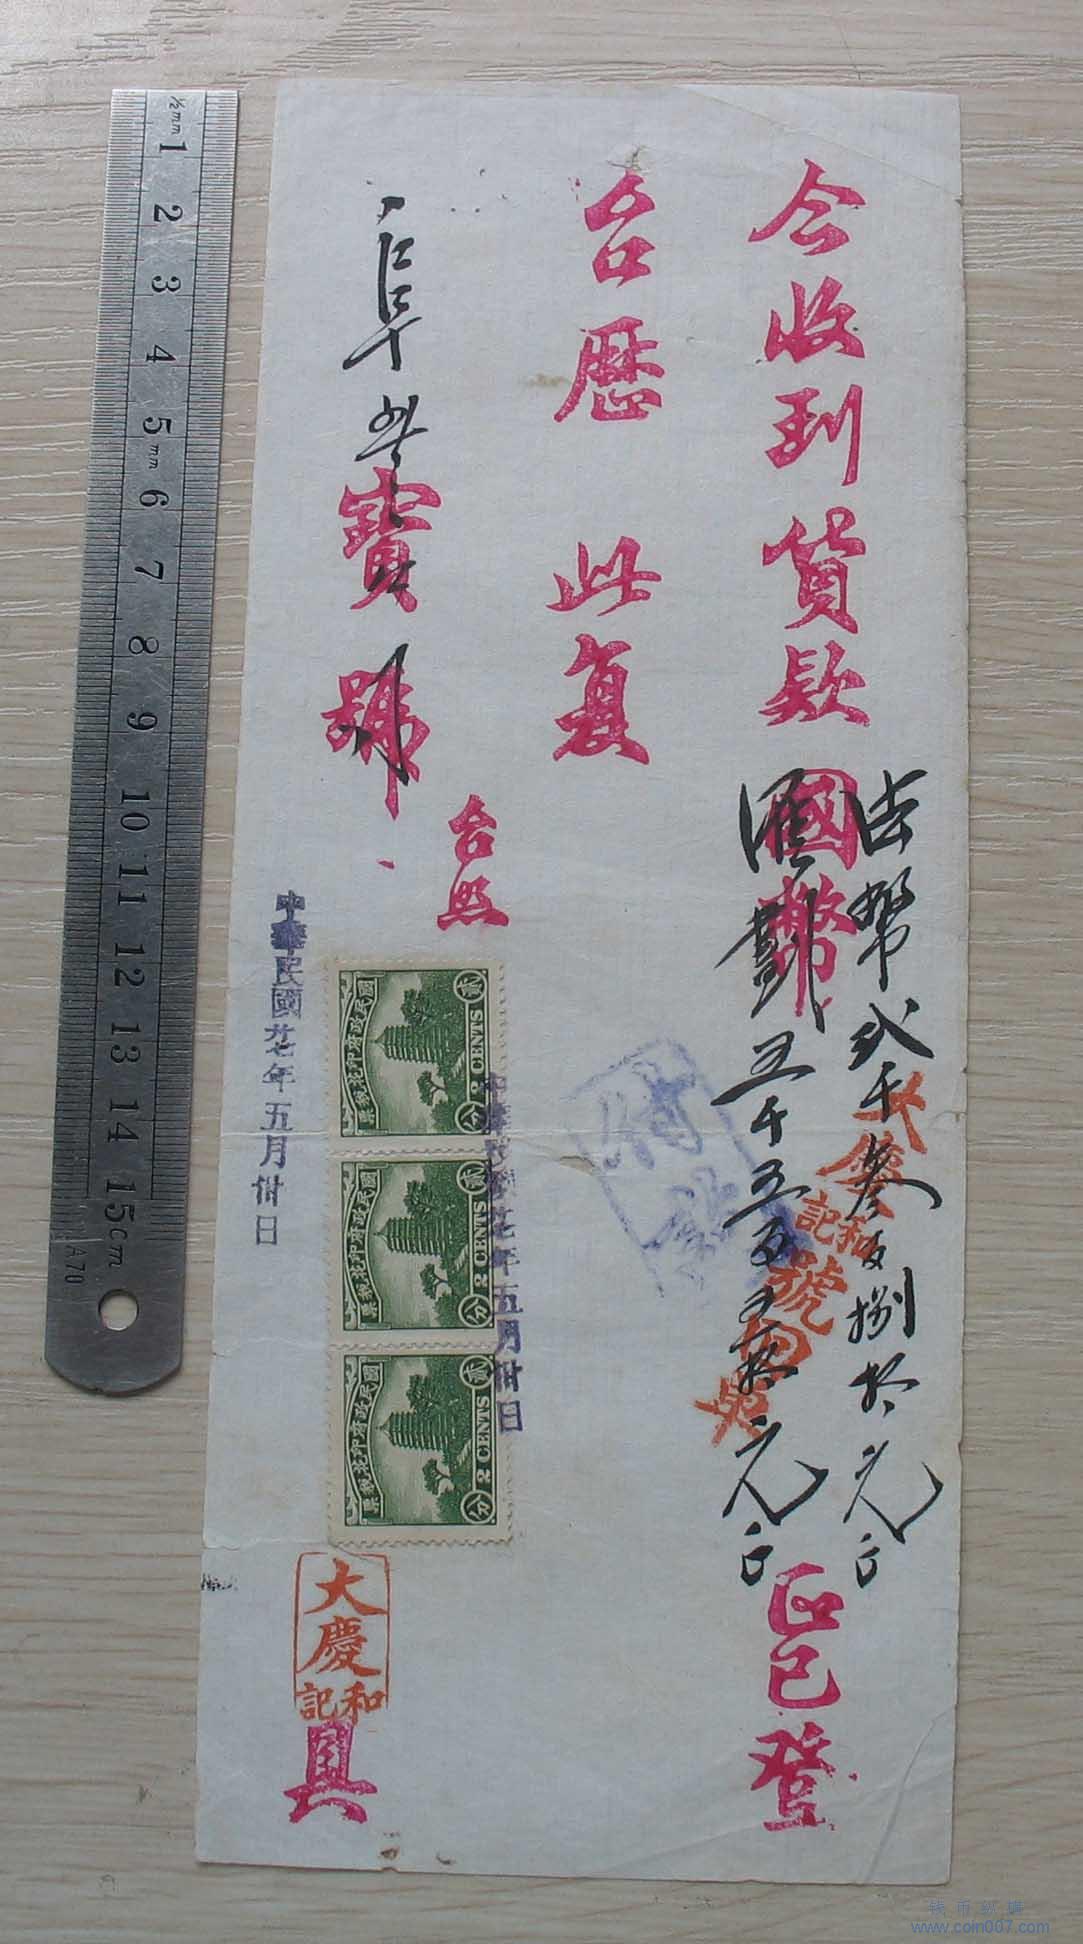 今收到貨款國幣 正已登
法幣弍千叁百捌拾元正
匯劃五千五百五拾元正
大慶和記號回單
台歷 此复
付訖
台照
阜豐寶號
國民政府印花稅票 貳分 2 CENTS
國民政府印花稅票 貳分 2 CENTS
國民政府印花稅票 貳分 2 CENTS
中華民國廿七年五月卅日
中華民國廿七年五月卅日
大慶和記具
1/2mm 1 2 3 4 5mm 6 7 8 9 10 11 12 13 14 15cm
A70
钱币纵横
www.coin007.com